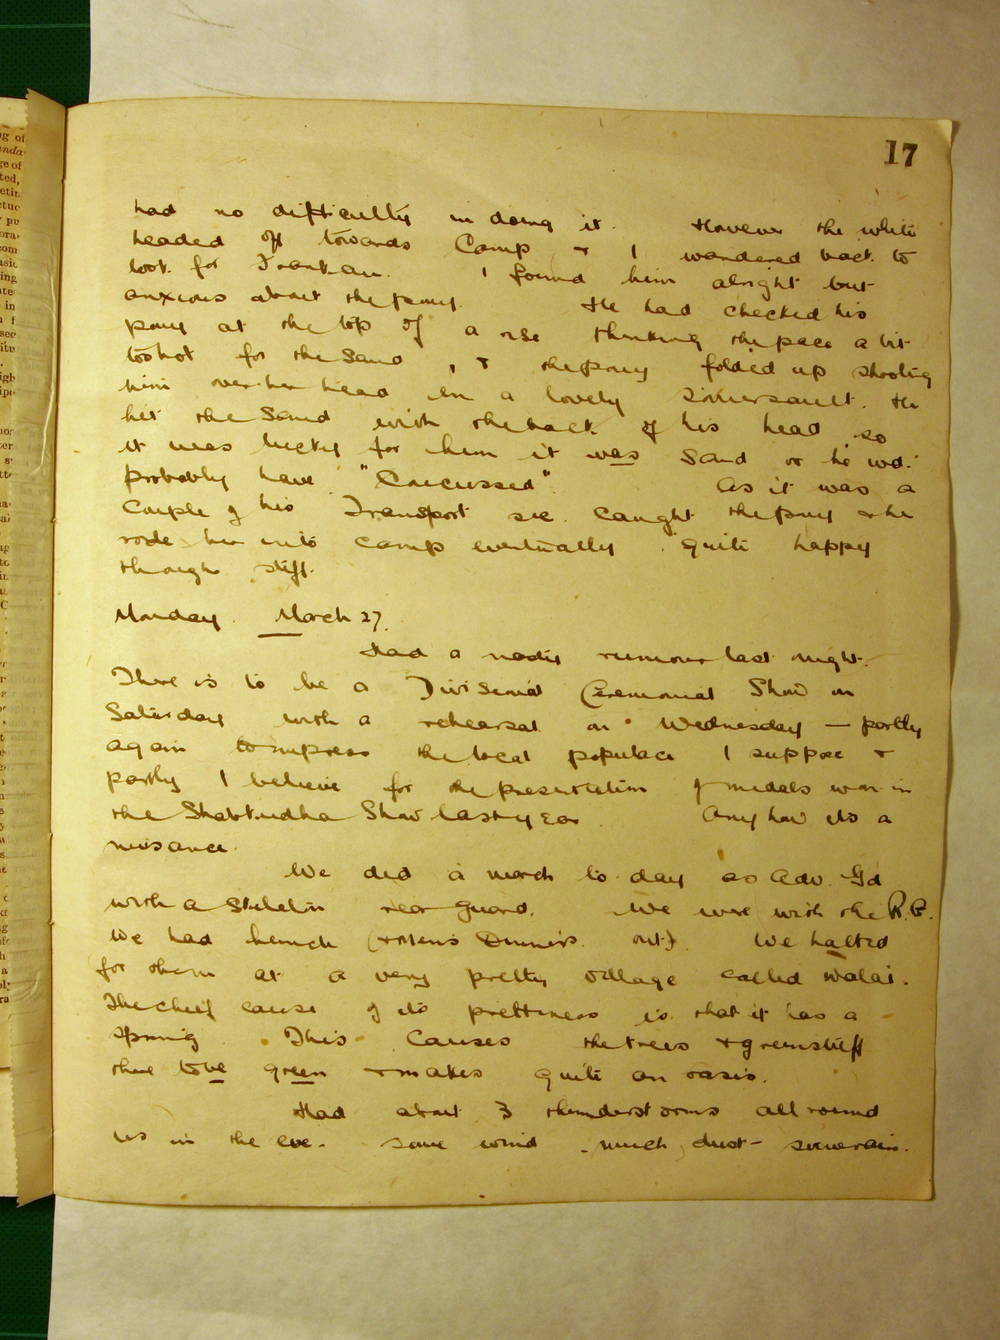 17
had no difficulty in doing it. However the white
headed off towards Camp & I wandered back to
look for . I found him alright but
anxious about the pony. He had checked his
pony at the top of a rise thinking the pace a bit
too hot for the sand, & the pony folded up shooting
him over her head in a lovely somersault. He
hit the sand with the back of his head so
it was lucky for him it was sand or he wd.
probably have "Concussed". As it was a
couple of his Transport see caught the pony & he
rode her into camp eventually quite happy
though stiff.
Monday. March 27.
Had a nasty rumour last night.
There is to be a Divisional Ceremonial Show on
Saturday with a rehearsal on Wednesday — partly
again to impress the local populace I suppose &
partly I believe for the presentation of medals won in
the Show last year. Anyhow its a
nuisance.
We did a march to day as Adv. Gd
with a skeleton rear guard. We were with the R.B.
We had lunch (& Men's Dinners out). We halted
for them at a very pretty village called Walai.
The chief cause of its prettiness is that it has a
spring. This causes the trees & greenstuff
there to be green & makes quite an oasis.
Had about 3 thunderstorms all round
us in the eve. some wind much dust - some rain.